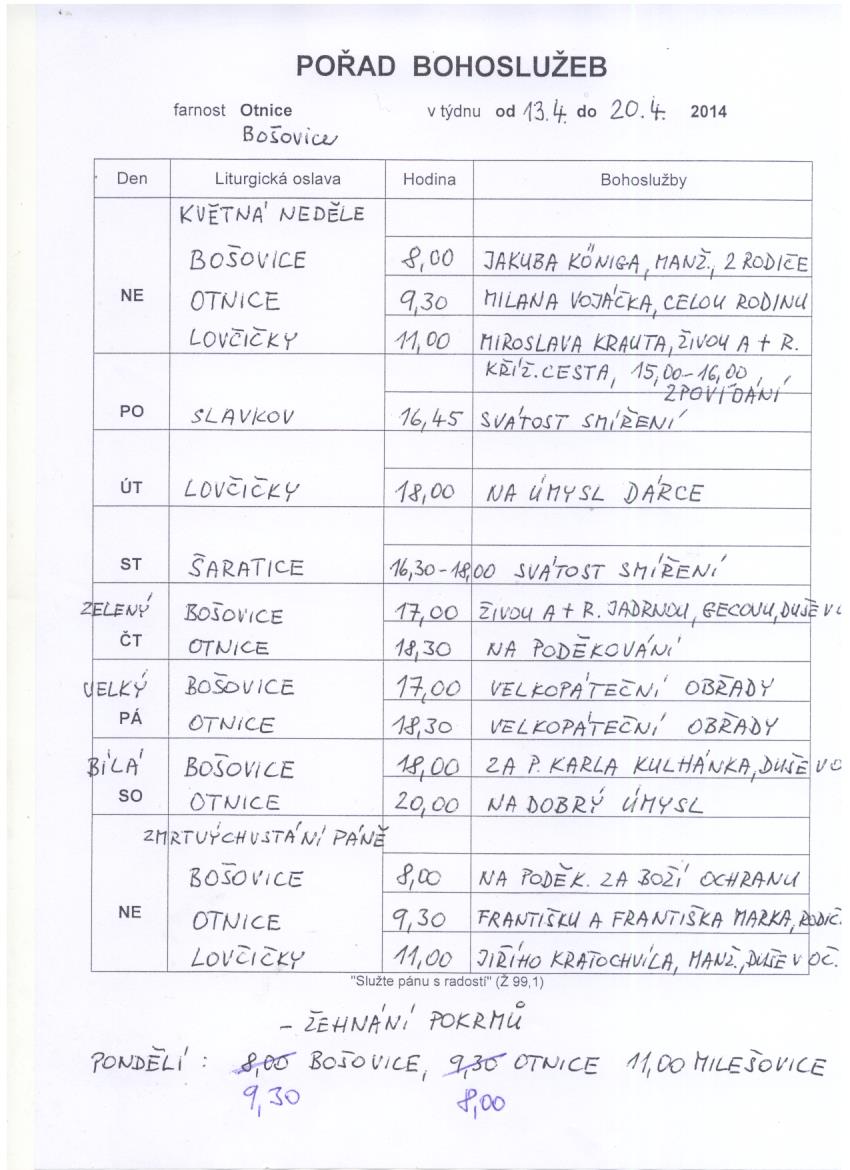 POŘAD BOHOSLUŽEB
farnost Otnice v týdnu od 13.4. do 20.4. 2014
Bošovice
Den Liturgická oslava Hodina Bohoslužby
KVĚTNÁ NEDĚLE
BOŠOVICE 8,00 JAKUBA KÖNIGA, MANŽ., 2 RODIČE
NE OTNICE 9,30 MILANA VOJÁČKA, CELOU RODINU
LOVČIČKY 11,00 MIROSLAVA KRAUTA, ŽIVOU A + R.
KŘÍŽ. CESTA, 15,00-16,00,
ZPOVÍDÁNÍ
PO SLAVKOV 16,45 SVÁTOST SMÍŘENÍ
ÚT LOVČIČKY 18,00 NA ÚMYSL DÁRCE
ST ŠARATICE 16,30-18,00 SVÁTOST SMÍŘENÍ
ZELENÝ BOŠOVICE 17,00 ŽIVOU A + R. JADRNOU, GECOVU, DUŠE V OČ
ČT OTNICE 18,30 NA PODĚKOVÁNÍ
VELKÝ BOŠOVICE 17,00 VELKOPÁTEČNÍ OBŘADY
PÁ OTNICE 18,30 VELKOPÁTEČNÍ OBŘADY
BÍLÁ BOŠOVICE 18,00 ZA P. KARLA KULHÁNKA, DUŠE V O
SO OTNICE 20,00 NA DOBRÝ ÚMYSL
ZMRTVÝCHVSTÁNÍ PÁNĚ
BOŠOVICE 8,00 NA PODĚK. ZA BOŽÍ OCHRANU
NE OTNICE 9,30 FRANTIŠKU A FRANTIŠKA MARKA, RODIČ
LOVČIČKY 11,00 JIŘÍHO KRATOCHVÍLA, MANŽ., DUŠE V OČ.
"Služte pánu s radostí" (Ž 99,1)
- ŽEHNÁNÍ POKRMŮ
PONDĚLÍ : 8,00 BOŠOVICE, 9,30 OTNICE 11,00 MILEŠOVICE
9,30 8,00